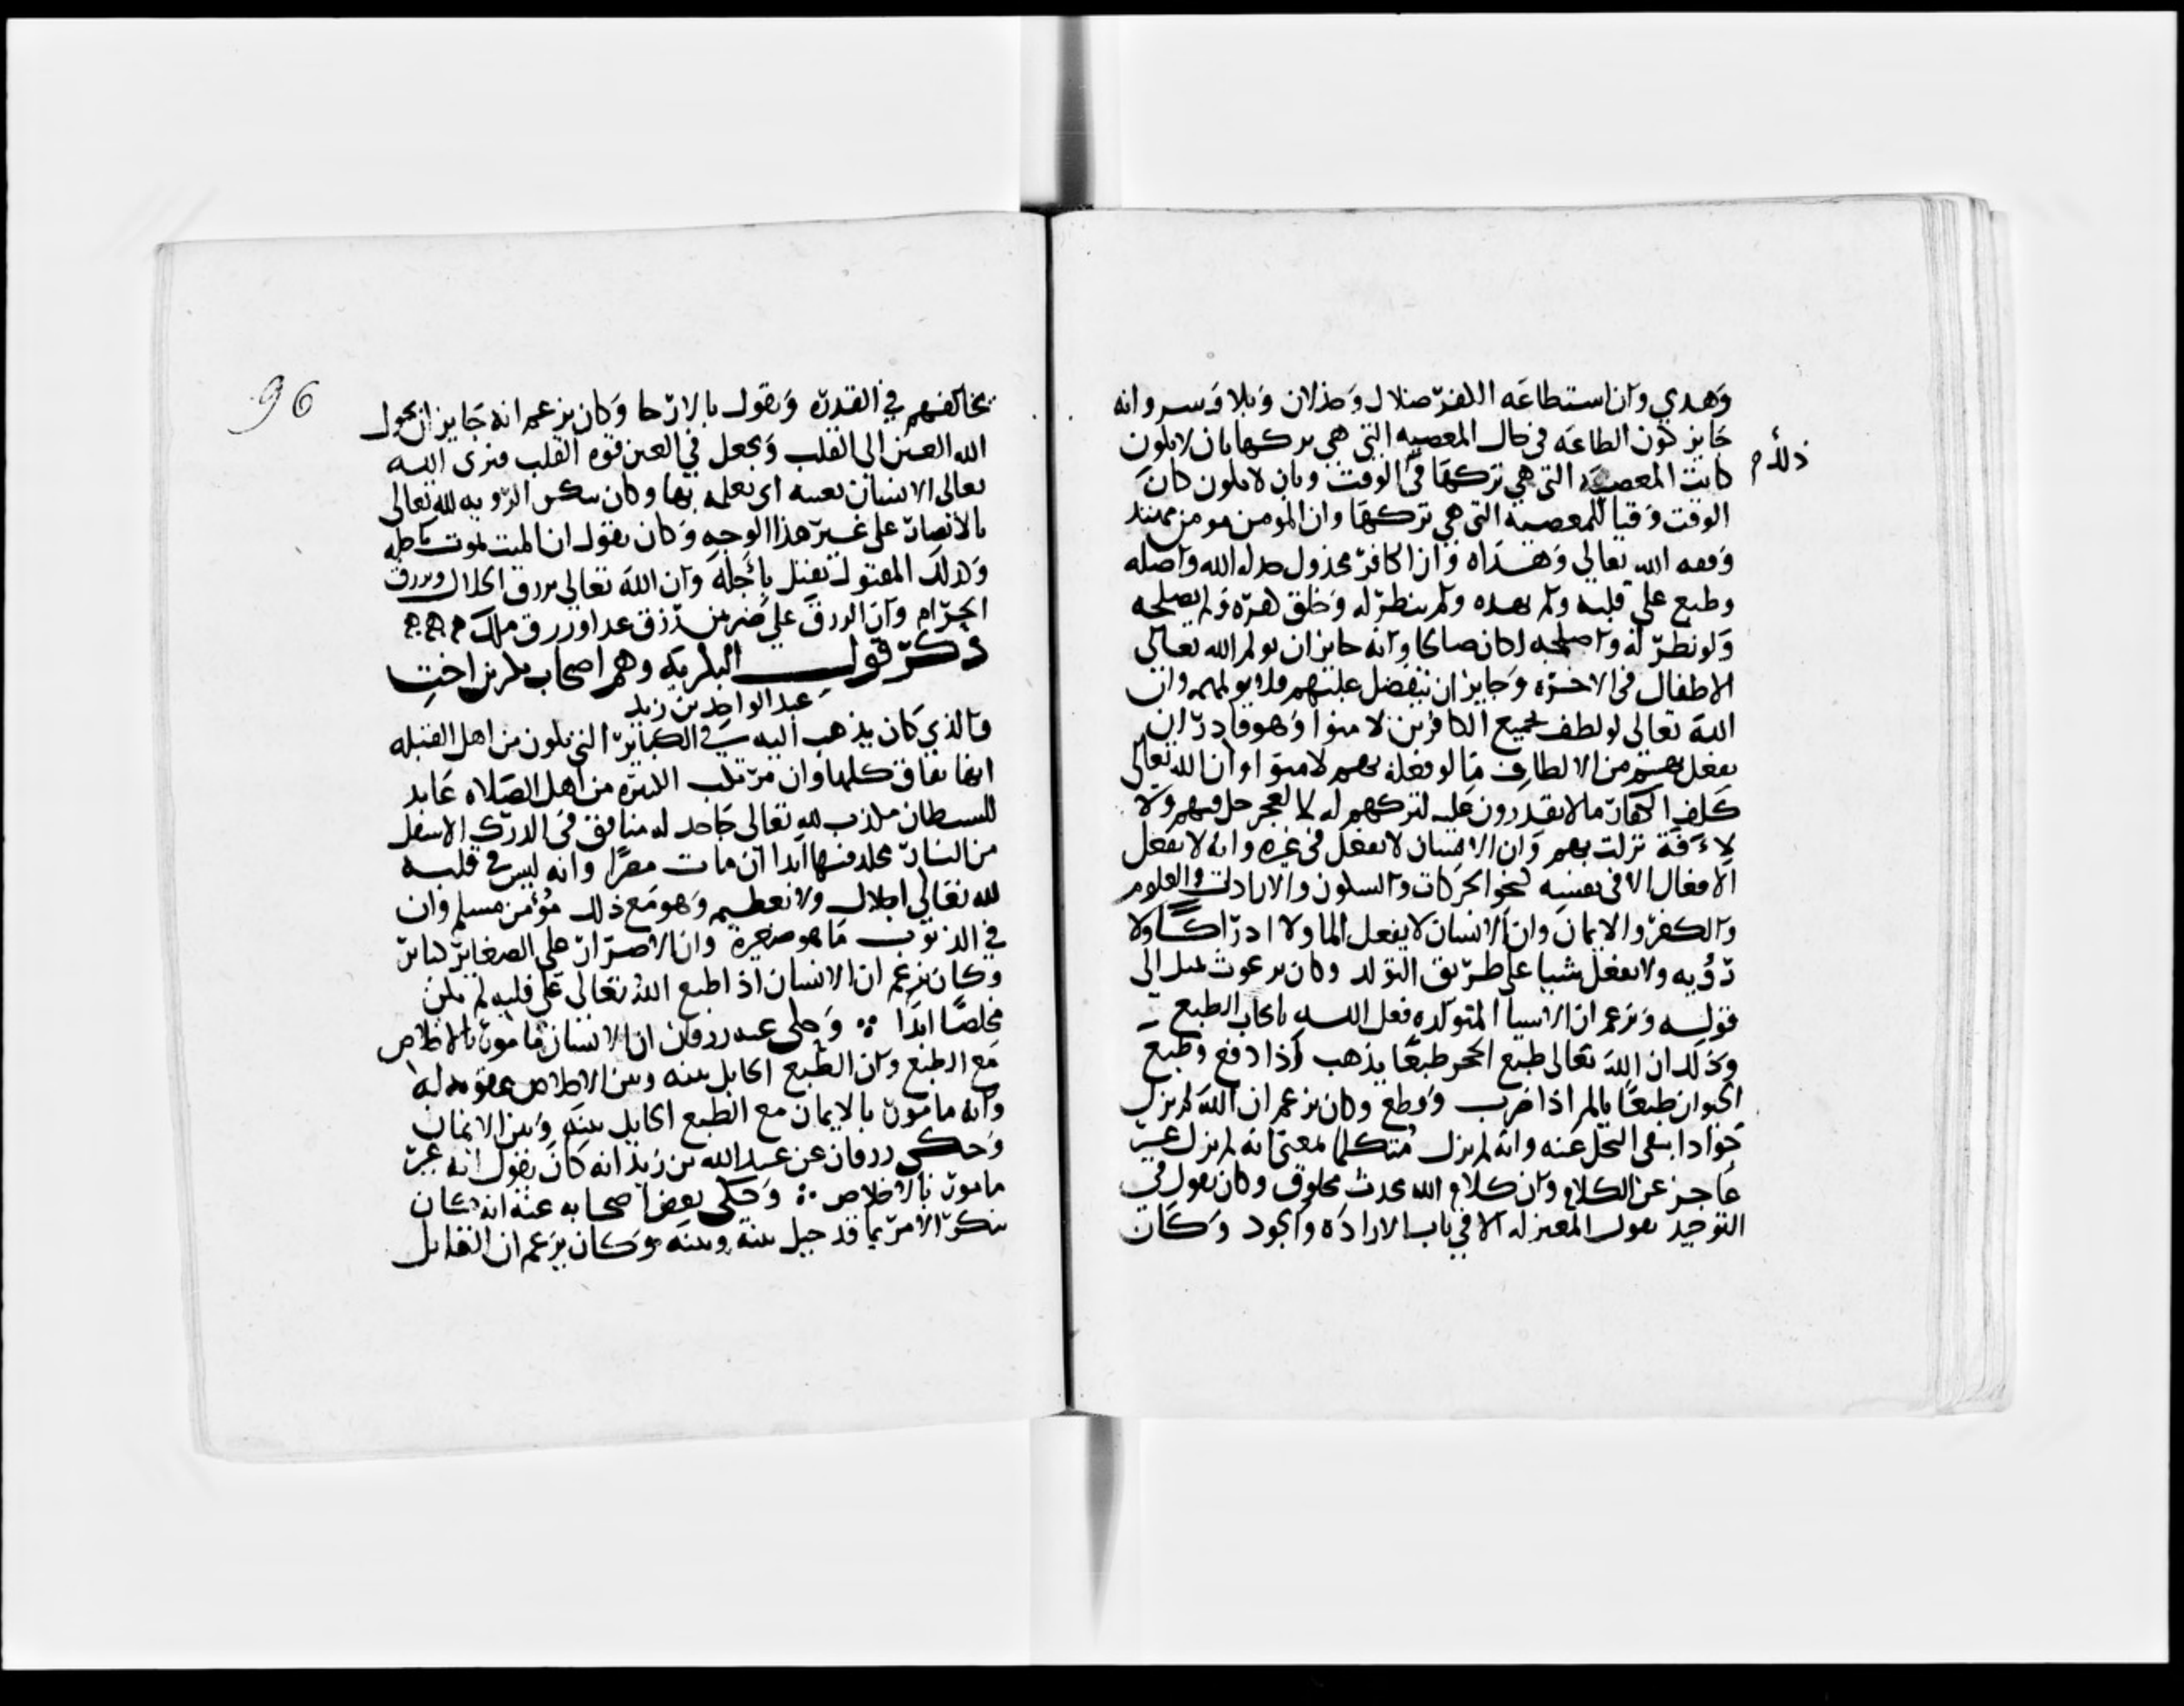 وهدي وان استطاعه الكفر ضلال وخذلان وبلا وسر وانه
جايز كون الطاعه في حال المعصيه التي هي تركها بان لا يكون
ذلك
كانت المعصيه التي هي تركها في الوقت وبان لا يكون كان
الوقت وقتا للمعصيه التي هي تركها وان المومن مومن مهتد
وفقه الله تعالى وهداه وان الكافر مخذول خذله الله واضله
وطبع على قلبه ولم يهده ولم ينظر له وخلق كفره ولم يصلحه
ولو نظر له واصلحه لكان صالحا وانه جايز ان يولم الله تعالى
الاطفال في الاخره وجايز ان يتفضل عليهم فلا يولمهم وان
الله تعالى لو لطف بجميع الكافرين لامنوا وهو قادر ان
يفعل بهم من الالطاف ما لو فعله بهم لامنوا وان الله تعالى
كلف الكفار ما لا يقدرون عليه لتركهم له لا لعجز حل فيهم ولا
لافة نزلت بهم وان الانسان لا يفعل في غيره وانه لا يفعل
الافعال الا في نفسه كنحو الحركات والسكون والارادات والعلوم
والكفر والايمان وان الانسان لا يفعل الما ولا ادراكا ولا
رؤيه ولا يفعل شيا على طريق التولد وكان برغوث يميل الى
قوله ويزعم ان الاشيا المتولده فعل الله بايجاب الطبع
وذلك ان الله تعالى طبع الحجر طبعا يذهب اذا دفع وطبع
الحيوان طبعا يالم اذا ضرب وقطع وكان يزعم ان الله لم يزل
جوادا بنفي البخل عنه وانه لم يزل متكلما بمعنى انه لم يزل غير
عاجز عن الكلام وان كلام الله محدث مخلوق وكان يقول في
التوحيد بقول المعتزله الا في باب الاراده والجود وكان
96
يخالفهم في القدر ويقول بالارجا وكان يزعم انه جايز ان يحول
الله العين الى القلب ويجعل في العين قوه القلب فيرى الله
تعالى الانسان بعينه اي يعلمه بها وكان ينكر الرويه لله تعالى
بالابصار على غير هذا الوجه وكان يقول ان الميت يموت باجله
وكذلك المقتول يقتل بأجله وان الله تعالى يرزق الحلال ويرزق
الحرام وان الرزق على ضربين رزق غدا ورزق ملك
ذكر قول البكريه وهم اصحاب بكر بن اخت
عبد الواحد بن زيد
والذي كان يذهب اليه في الكباير التي تكون من اهل القبله
انها نفاق كلها وان مرتكب الكبيره من اهل الصلاه عابد
للشيطان مكذب لله تعالى جاحد له منافق في الدرك الاسفل
من النار مخلد فيها ابدا ان مات مصرا وانه ليس في قلبه
لله تعالى اجلال ولا تعظيم وهو مع ذلك مؤمن مسلم وان
في الذنوب ما هو صغيرة وان الاصرار على الصغاير كباير
وكان يزعم ان الانسان اذا طبع الله تعالى على قلبه لم يكن
مخلصا ابدا وحكى عنه زرقان ان الانسان مامور بالاخلاص
مع الطبع وان الطبع الحايل بينه وبين الاخلاص عقوبه له
وانه مامور بالايمان مع الطبع الحايل بينه وبين الايمان
وحكى زرقان عن عبد الله بن زيد انه كان يقول انه غير
مامور بالاخلاص وحكى بعض اصحابه عنه انه كان
ينكر الامر بما قد حيل بينه وبينه وكان يزعم ان القاتل